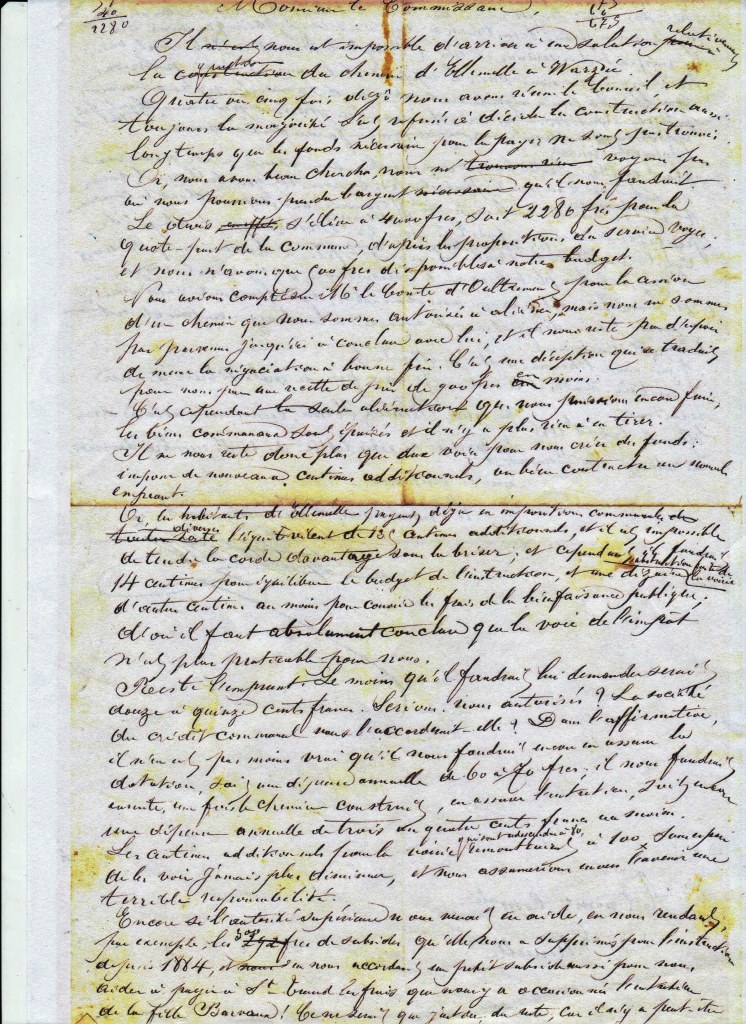 Monsieur le Commissaire,
40
2280
Il n'est nous est impossible d'arriver à une solution relativement
la construction du chemin d'Ellemelle à Warzée.
Quatre ou cinq fois déjà nous avons réuni le Conseil, et
toujours la majorité s'est refusée à décider la construction aussi
longtemps que les fonds nécessaires pour la payer ne sont pas trouvés.
Or, nous avons beau chercher, nous ne voyons pas
où nous pourrions prendre l'argent qu'il nous faudrait.
Le devis s'élève à 4000 frcs, soit 2280 frcs pour la
quote-part de la commune, d'après les propositions du service voyer,
et nous n'avons que 500 frcs disponibles à notre budget.
Nous avions compté sur Mr le Comte d'Oultremont pour la cession
d'un chemin que nous sommes autorisés à aliéner, mais nous ne sommes
pas parvenus jusqu'ici à conclure avec lui, et il nous reste peu d'espoir
de mener la négociation à bonne fin. C'est une déception qui se traduit
pour nous par une recette de près de 900 frcs en moins.
C'est cependant la seule aliénation que nous puissions encore faire,
les biens communaux sont épuisés et il n'y a plus rien à en tirer.
Il ne nous reste donc plus que deux voies pour nous créer des fonds:
imposer de nouveaux centimes additionnels, ou bien contracter un nouvel
emprunt.
Or, les habitants d'Ellemelle payent déjà en impositions communales
diverses l'équivalent de centimes additionnels, et il est impossible
de tendre la corde davantage sans la briser; et cependant il faudrait
14 centimes pour équilibrer le budget de l'instruction, et une dizaine
d'autres centimes au moins pour couvrir les frais de la bienfaisance publique;
d'où il faut absolument conclure que la voie de l'impôt
n'est plus praticable pour nous.
Reste l'emprunt. Le moins qu'il faudrait lui demander serait
douze à quinze cents francs. Serions-nous autorisés? La société
du crédit communal nous l'accorderait-elle? Dans l'affirmative,
il n'en est pas moins vrai qu'il nous faudrait encore en assurer la
dotation, soit une dépense annuelle de 60 à 70 frcs; il nous faudrait
ensuite, une fois le chemin construit, en assurer l'entretien, soit encore
une dépense annuelle de trois ou quatre cents francs au moins.
Les centimes additionnels pour la voirie, qui sont descendus à 80, remonteraient à 100, sans espoir
de les voir jamais plus diminuer, et nous assumerions envers l'avenir une
terrible responsabilité.
Encore si l'autorité supérieure nous venait en aide, en nous rendant,
par exemple, les frcs de subsides qu'elle nous a supprimés pour l'instruction
depuis 1884, et en nous accordant un petit subside aussi pour nous
aider à payer à St Trond les frais que nous y a occasionnés l'entretien
de la fille ! Ce ne serait que justice, du reste, car il n'y a peut-être